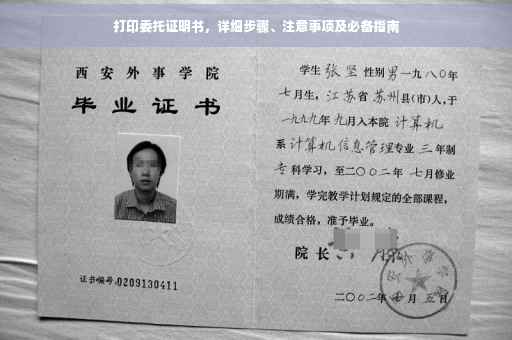 打印委托证明书，详细步骤、注意事项及必备指南
西安外事学院
毕业证书
证书编号:0209130411
学生 张坚 性别 男 一九八〇年
七月生，江苏省 苏州县(市)人,于
一九九九年 九月入本院 计算机
系 计算机信息管理 专业 三 年制
专科学习，至二〇〇二年 七月修业
期满，学完教学计划规定的全部课程，
成绩合格，准予毕业。
院长
二〇〇二年 月 五日